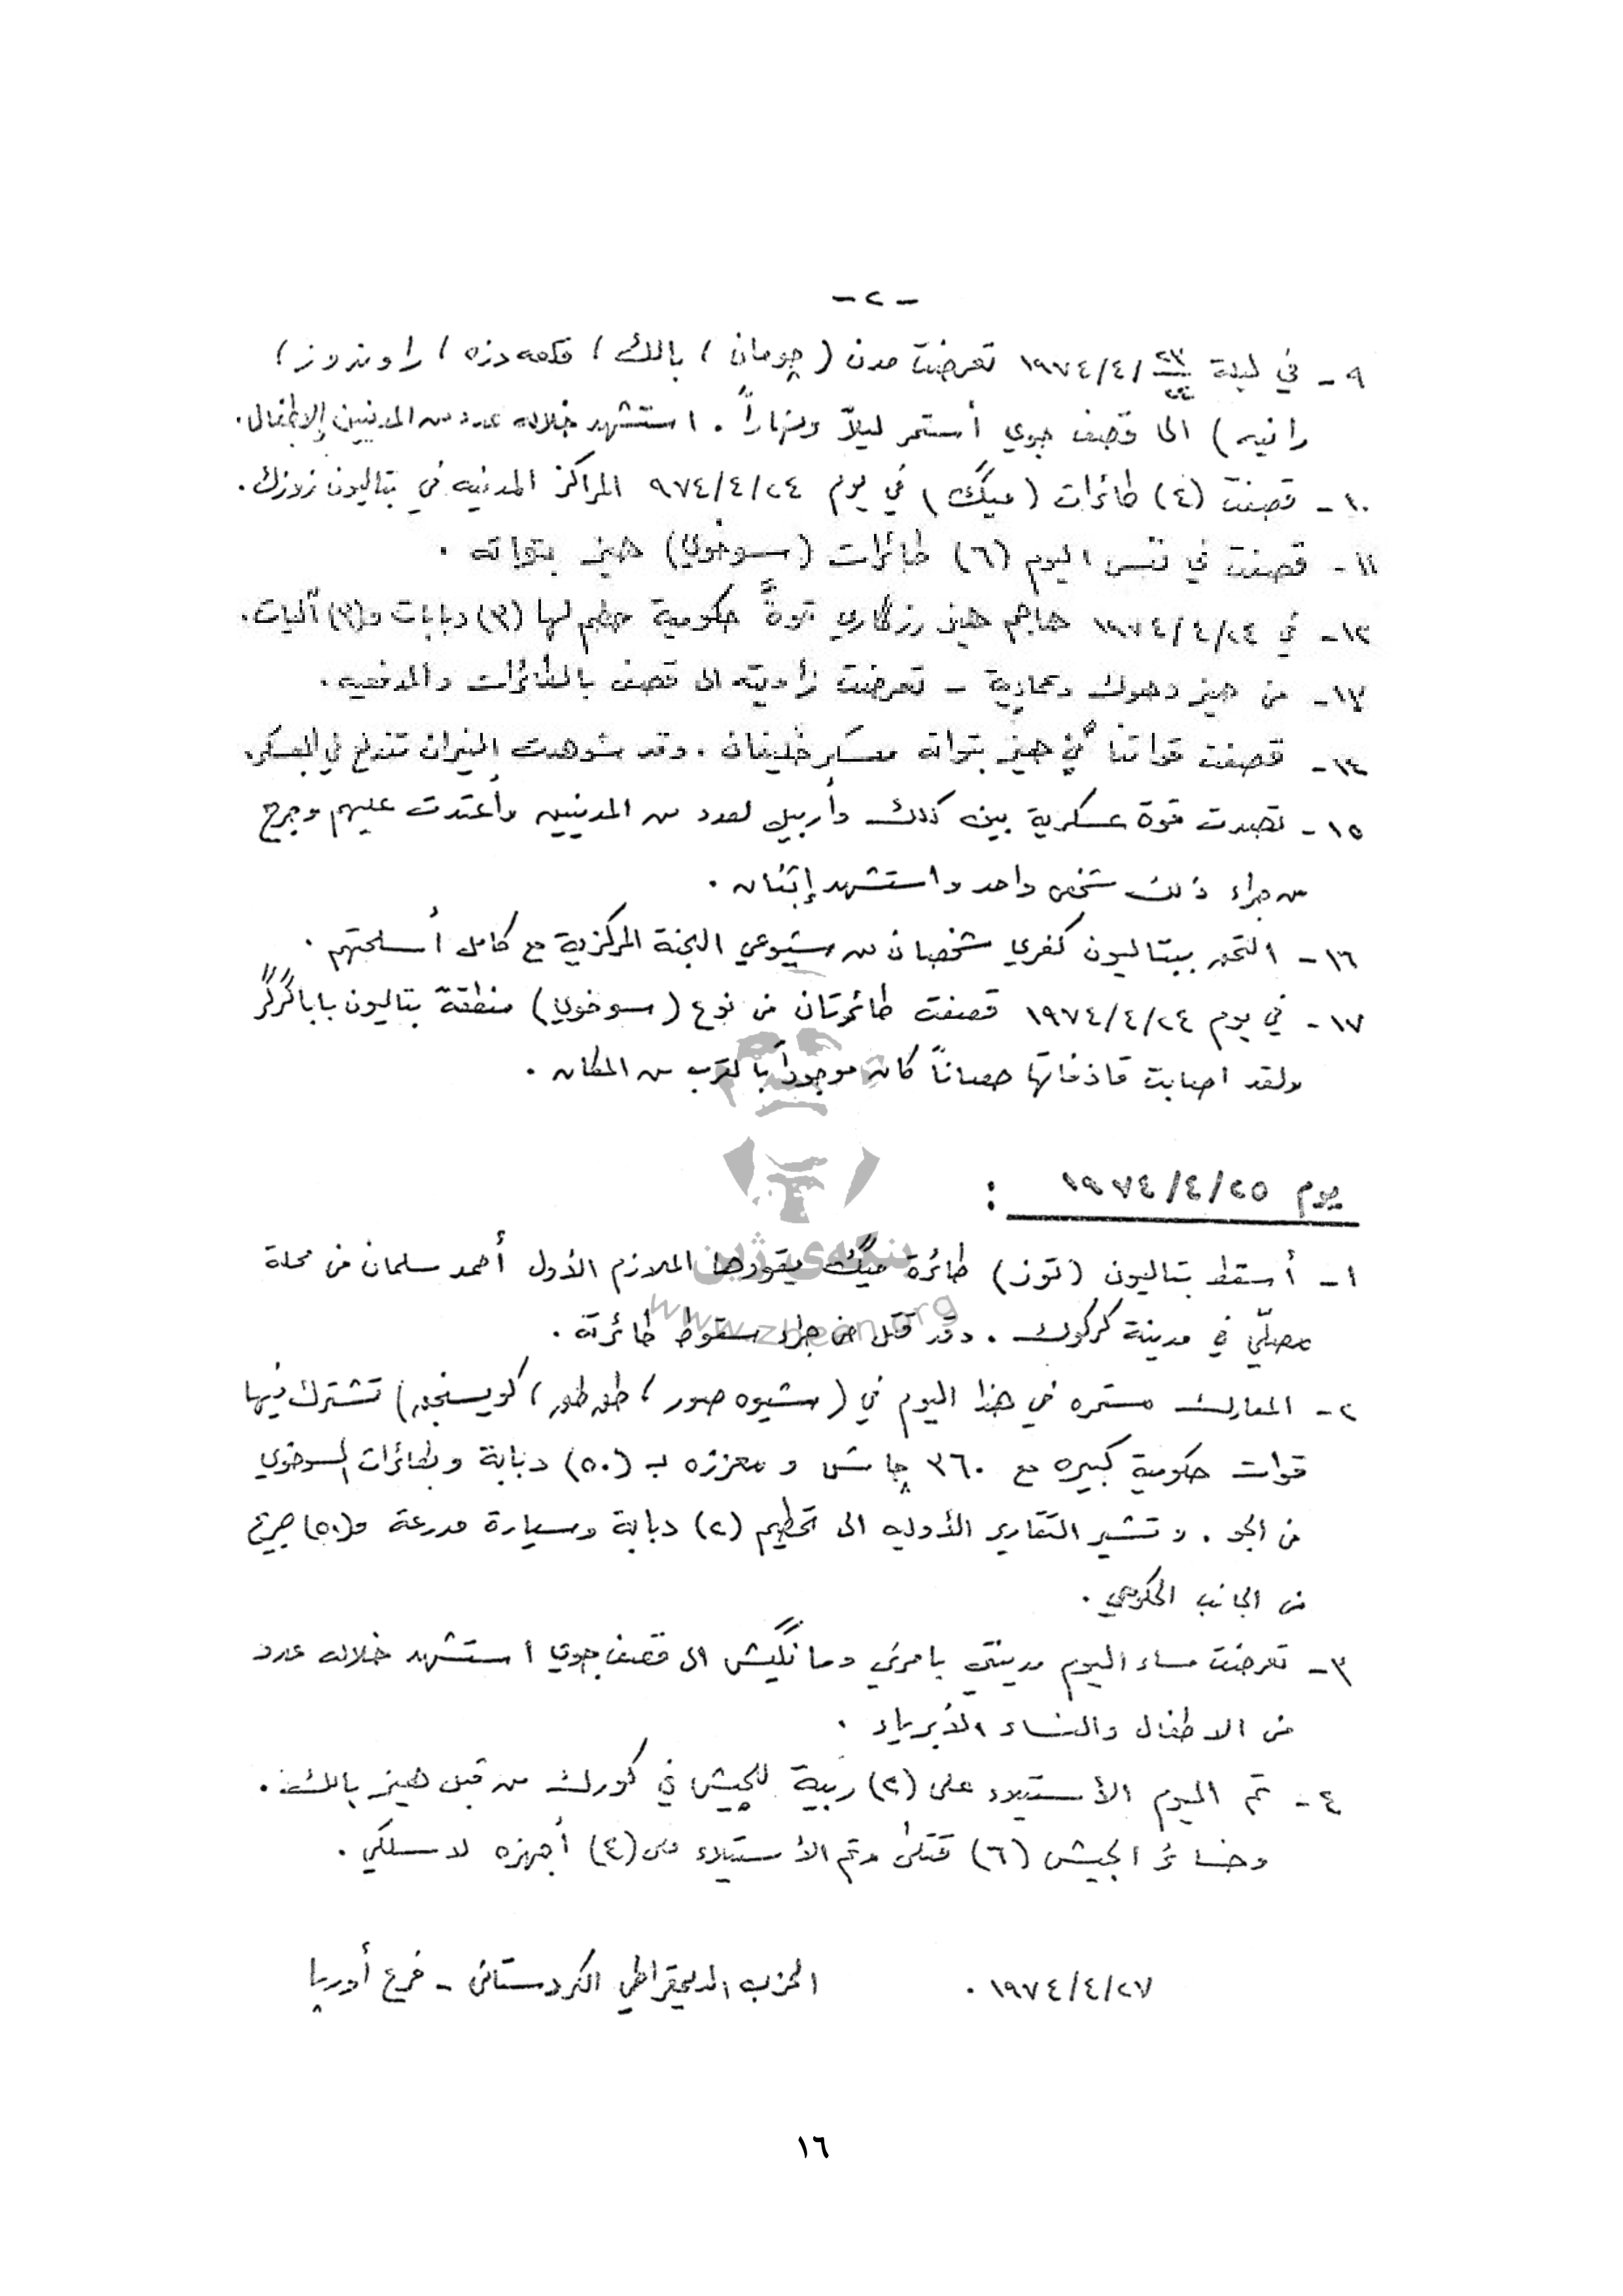 - ٢ -
٩ - في ليلة ٢٣/٢٤/٤/١٩٧٤ تعرضت مدن (چومان ، بالك ، قلعه دزه ، راوندوز ،
رانيه) الى قصف جوي أستمر ليلاً ونهاراً . استشهد خلاله عدد من المدنيين والاطفال .
١٠ - قصفت (٤) طائرات (ميگ) في يوم ٢٤/٤/٩٧٤ المراكز المدنيه في بتاليون زوزك .
١١ - قصفت في نفس اليوم (٦) طائرات (سوخوي) هيز بتواته .
١٢ - في ٢٤/٤/١٩٧٤ هاجم هيز رزگاري قوةً حكومية حطم لها (٣) دبابات و(٣) آليات .
١٣ - من هيز دهوك وعمادية - تعرضت زاويته الى قصف بالطائرات والمدفعيه .
١٤ - قصفت قواتنا في هيز بتواته معسكر خليفان . وقد شوهدت النيران تندلع في المعسكر .
١٥ - تصدت قوة عسكرية بين كلك وأربيل لعدد من المدنيين وأعتدت عليهم وجرح
من جراء ذلك شخص واحد واستشهد إثنان .
١٦ - التحق ببتاليون كفري شخصان من شيوعي اللجنة المركزية مع كامل أسلحتهم .
١٧ - في يوم ٢٤/٤/١٩٧٤ قصفت طائرتان من نوع (سوخوي) منطقة بتاليون باباگرگر
ولقد اصابت قاذفاتها حصاناً كان موجوداً بالقرب من المكان .
يوم ٢٥/٤/١٩٧٤ :
١ - أسقط بتاليون (توز) طائرة ميگ يقودها الملازم الأول أحمد سلمان من محلة
مصلّي في مدينة كركوك . وقد قتل من جراء سقوط طائرته .
٢ - المعارك مستمره في هذا اليوم في (شيوه صور ، طق طق ، كويسنجق) تشترك فيها
قوات حكومية كبيره مع ٣٦٠ چاش و معززه بـ (٥٠) دبابة وبطائرات السوخوي
من الجو . وتشير التقارير الأوليه الى تحطيم (٢) دبابة وسيارة مدرعة و(٥٠) جريح
من الجانب الحكومي .
٣ - تعرضت مساء اليوم مدينتي بامرني ومانگيش الى قصف جوي استشهد خلاله عدد
من الاطفال والنساء الأبرياء .
٤ - تم اليوم الأستيلاء على (٢) ربية للجيش في كورك من قبل هيز بالك .
وخسائر الجيش (٦) قتلى وتم الأستيلاء على (٤) أجهزه لاسلكي .
٢٧/٤/١٩٧٤ . الحزب الديمقراطي الكردستاني - فرع أوربا
بنكەی ژین
www.zheen.org
١٦